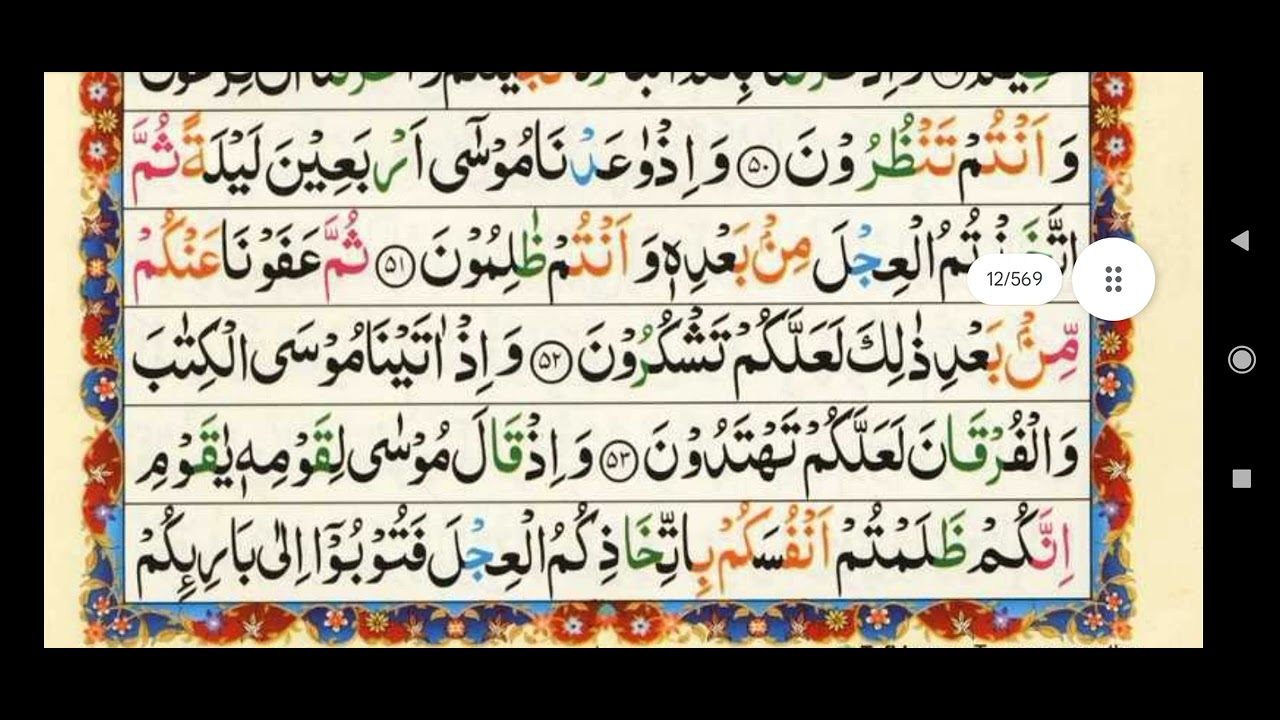 وَاَنْتُمْ تَنْظُرُوْنَ ۝۵۰ وَاِذْ وٰعَدْنَا مُوْسٰٓى اَرْبَعِيْنَ لَيْلَةً ثُمَّ
اتَّخَذْتُمُ الْعِجْلَ مِنْۢ بَعْدِهٖ وَاَنْتُمْ ظٰلِمُوْنَ ۝۵۱ ثُمَّ عَفَوْنَا عَنْكُمْ
12/569
مِّنْۢ بَعْدِ ذٰلِكَ لَعَلَّكُمْ تَشْكُرُوْنَ ۝۵۲ وَاِذْ اٰتَيْنَا مُوْسَى الْكِتٰبَ
وَالْفُرْقَانَ لَعَلَّكُمْ تَهْتَدُوْنَ ۝۵۳ وَاِذْ قَالَ مُوْسٰى لِقَوْمِهٖ يٰقَوْمِ
اِنَّكُمْ ظَلَمْتُمْ اَنْفُسَكُمْ بِاتِّخَاذِكُمُ الْعِجْلَ فَتُوْبُوْٓا اِلٰى بَارِىِٕكُمْ